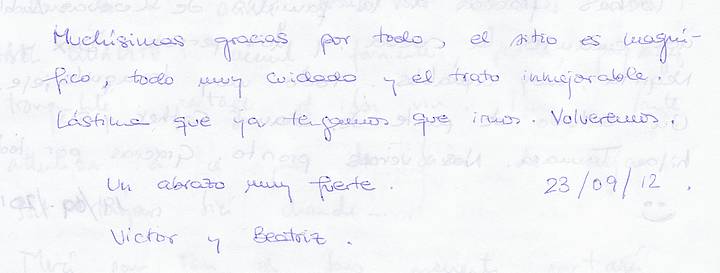 Muchísimas gracias por todo, el sitio es magní-
fico, todo muy cuidado y el trato inmejorable.
Lástima que ya tengamos que irnos. Volveremos.
Un abrazo muy fuerte. 23/09/12.
Victor y Beatriz.